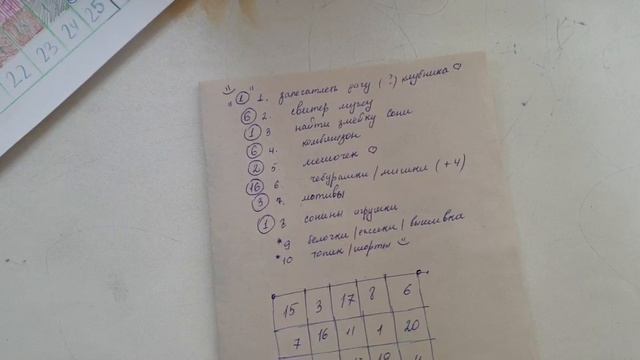 22 23 24 25
"1" 1. запечатлеть дачу (?) клубника ♡
6 2. свитер мужу
1 3 найти змейку Сони
6 4. комбинизон
2 5. мешочек ♡
16 6. чебурашки / мишки (+4)
3 7. мотивы
1 8 сонины игрушки
*9 белочки / ёжики / вышивка
*10 топик / шорты
15 3 17 8 6
7 16 11 1 20